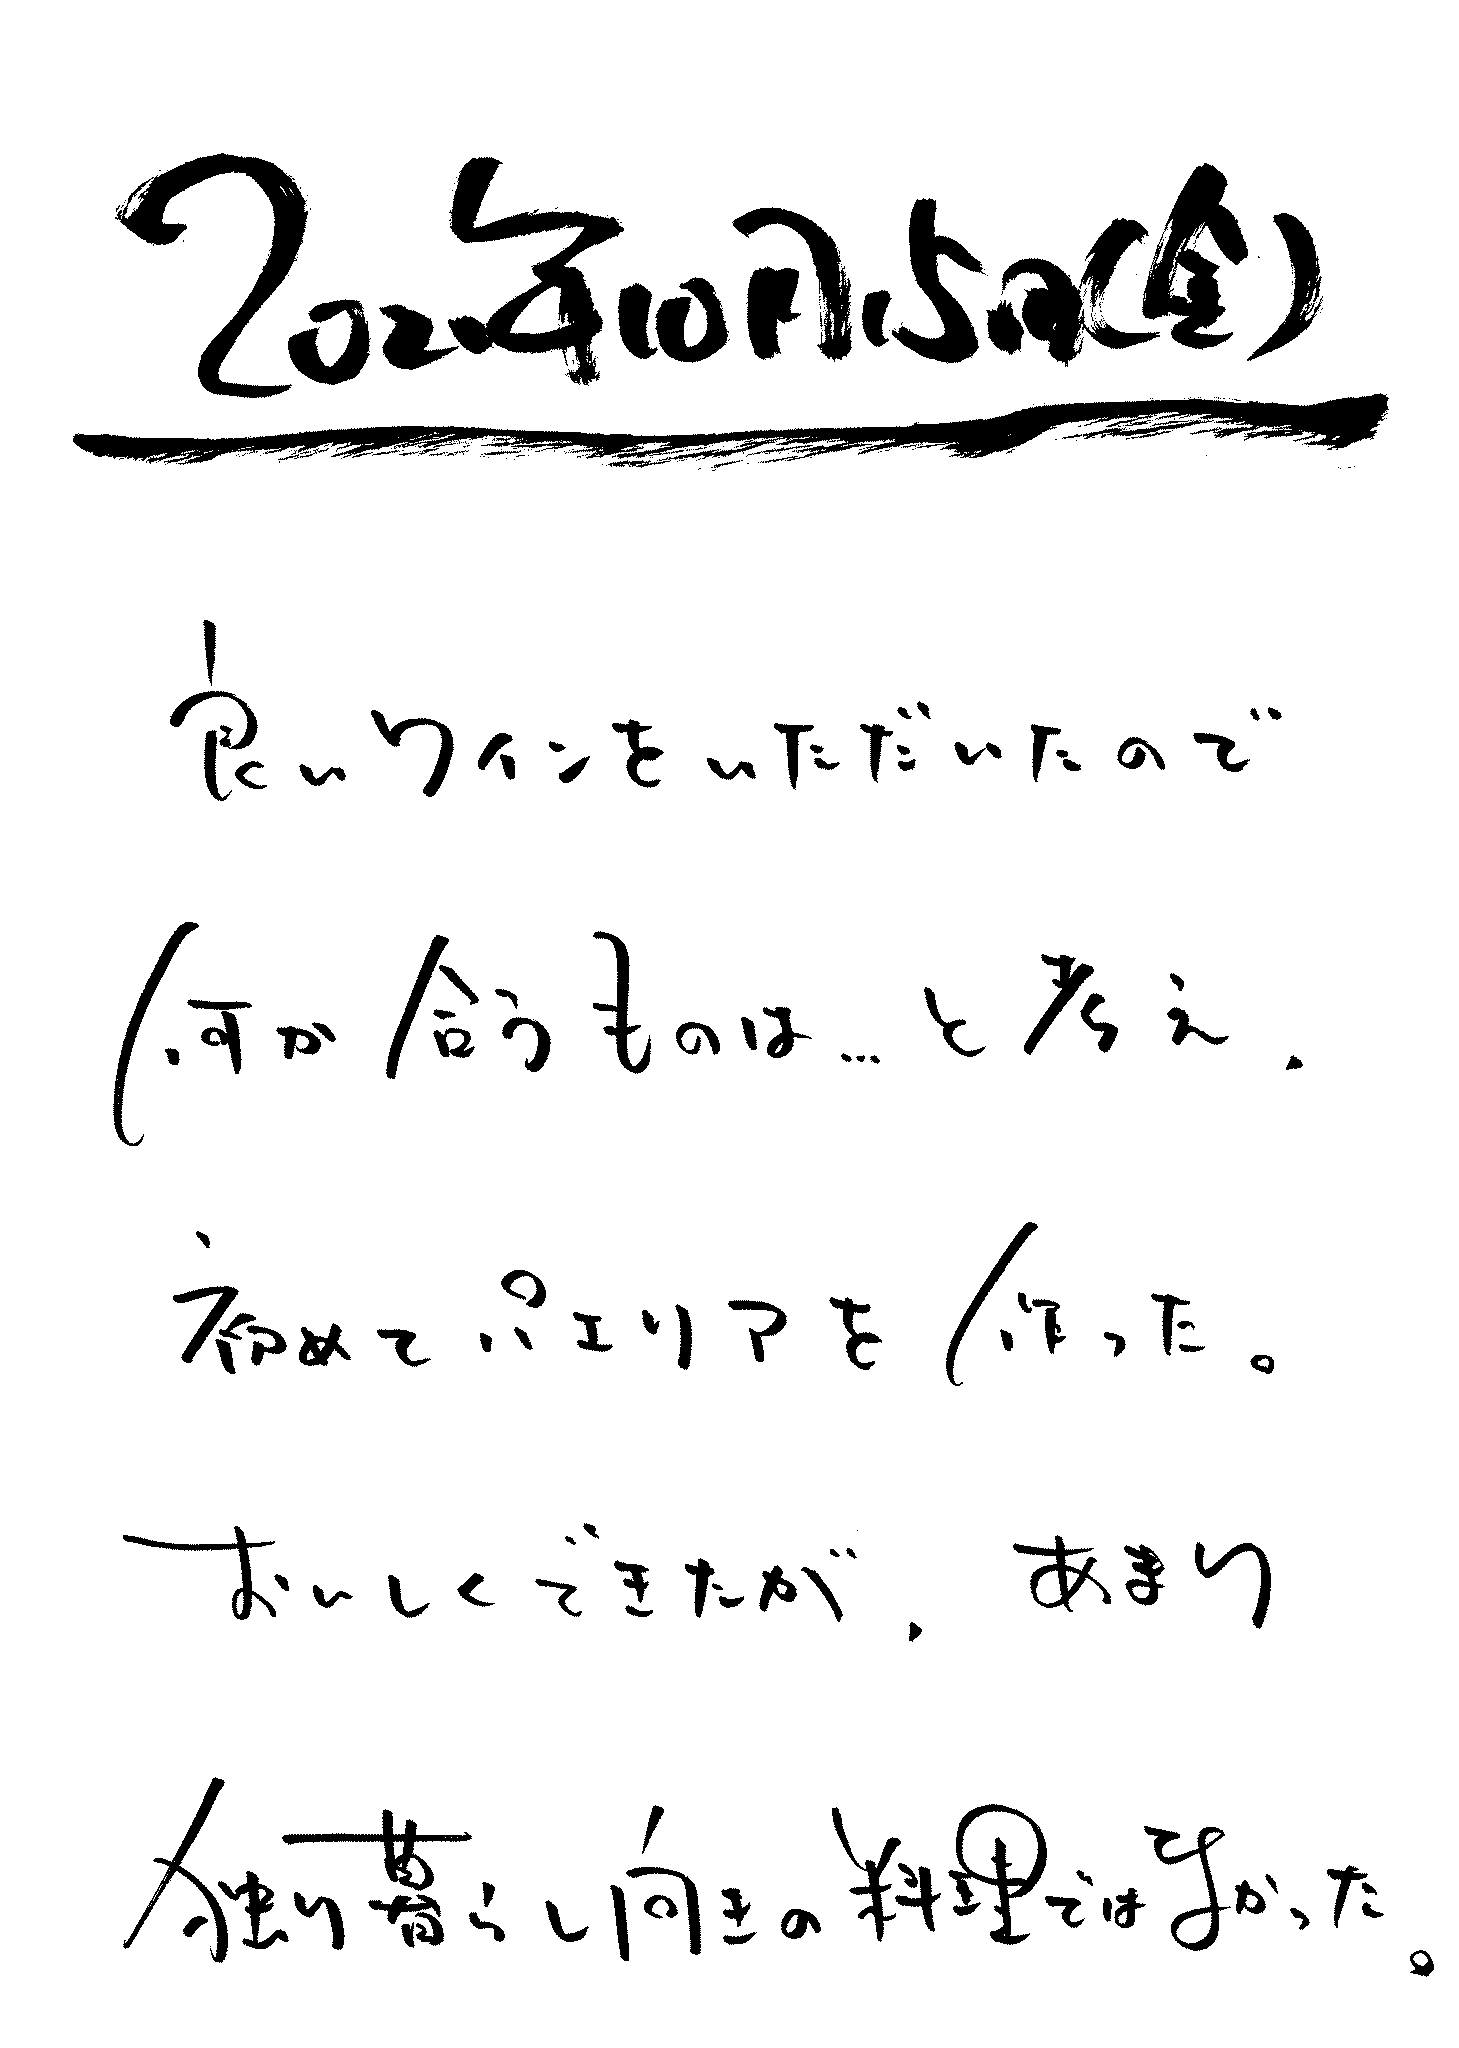 2021年10月15日(金)
良いワインをいただいたので
何か合うものは…と考え、
初めてパエリアを作った。
おいしくできたが、あまり
独り暮らし向きの料理ではなかった。